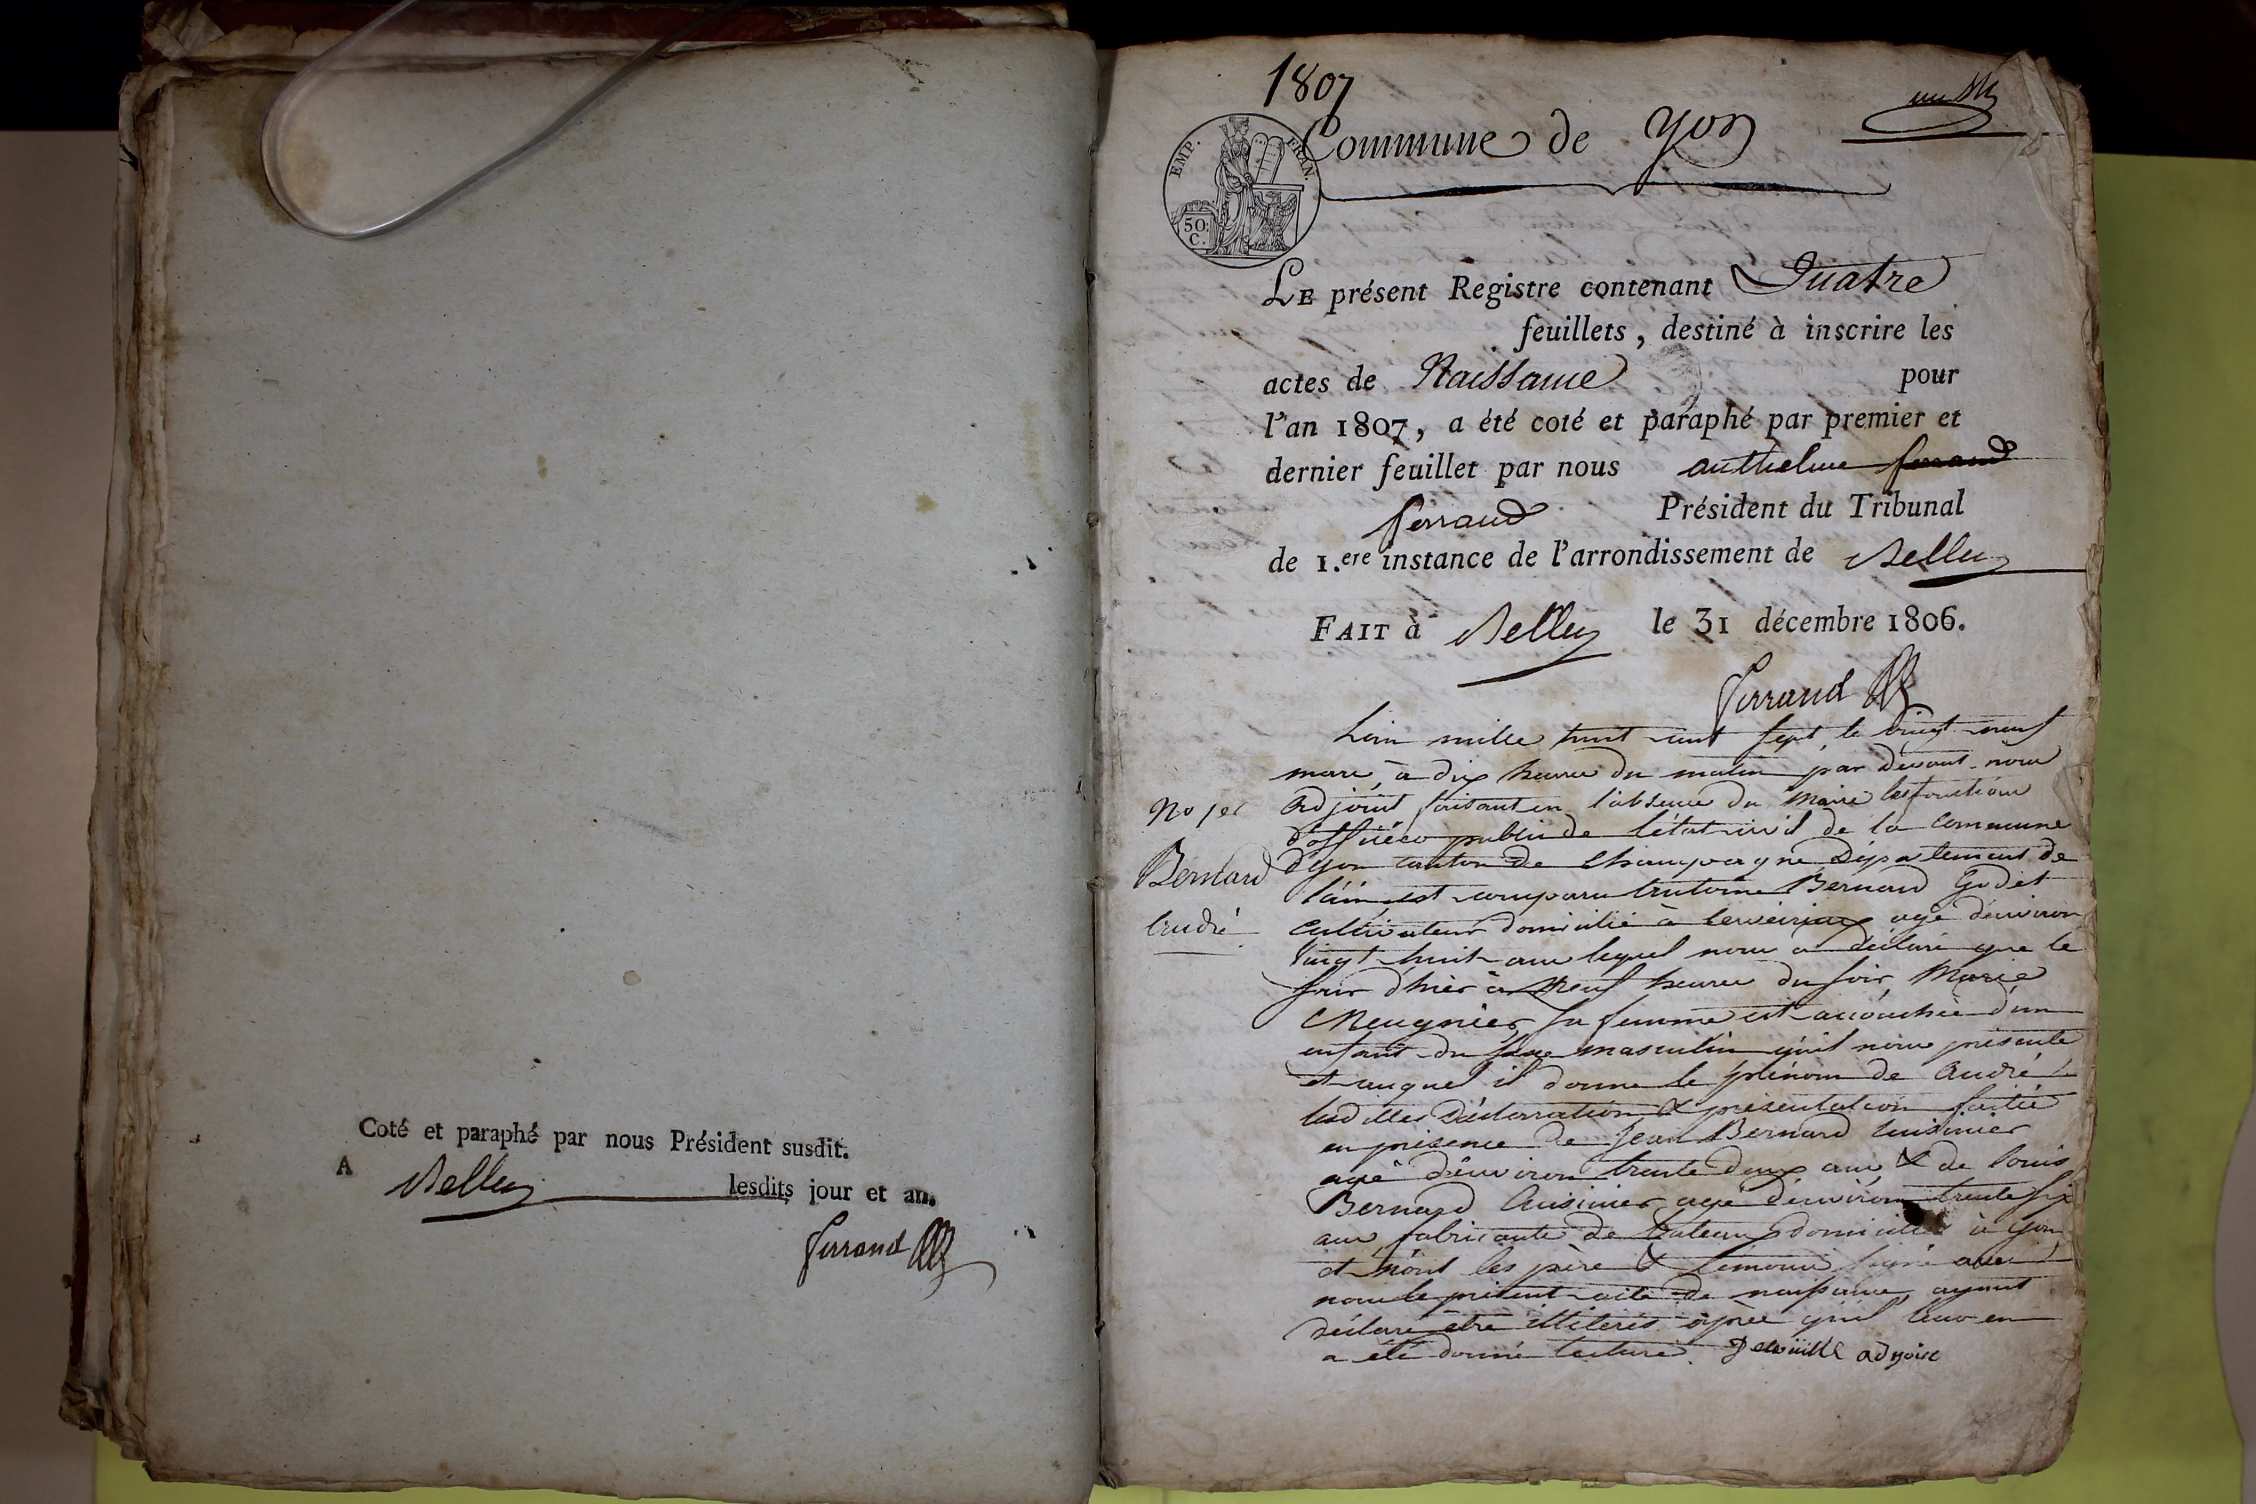 Coté et paraphé par nous Président susdit.
A Belley lesdits jour et an.
Ferrand
1807
un
Commune de Yon
EMP. FRAN.
50 C.
LE présent Registre contenant Quatre
feuillets, destiné à inscrire les
actes de Naissance pour
l'an 1807, a été coté et paraphé par premier et
dernier feuillet par nous anthelme ferrand
ferrand Président du Tribunal
de 1.ere instance de l'arrondissement de Belley
FAIT à Belley le 31 décembre 1806.
Ferrand
L'ain mille huit cent sept, le vingt neuf
mars, à dix heures du matin par devant nous
No 1er
adjoint faisant en l'absence du Maire les fonctions
d'officier public de l'état civil de la commune
Bernard
d'yon canton de champagne Département de
l'ain est comparu antoine Bernard Godet
andré
cultivateur domicilié à cerveirieu agé d'environ
vingt huit ans lequel nous a déclaré que le
jour d'hier à Neuf heures du soir Marie
Meugnier sa femme est accouchée d'un
enfant du sexe masculin qu'il nous présente
et auquel il donne le prénom de andré
lesdittes déclaration & présentation faitte
en présence de jean Bernard cuisinier
agé d'environ trente deux ans & de louis
Bernard Cuisinier agé d'environ trente six
ans fabricants de domicilies à yon
et n'ont les père & témoins signé avec
nous le présent acte de naissance ayant
déclaré être illiterés après qu'il leur en
a été donné lecture. adjoint